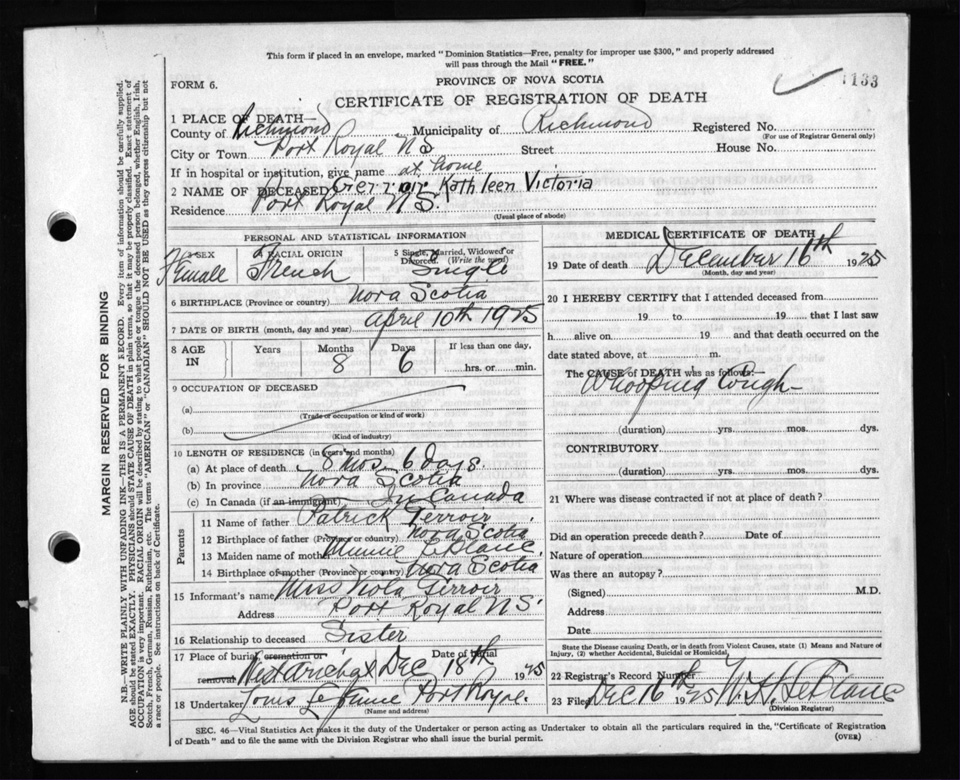 This form if placed in an envelope, marked "Dominion Statistics—Free, penalty for improper use $300," and properly addressed
will pass through the Mail "FREE."
FORM 6.
PROVINCE OF NOVA SCOTIA
1133
CERTIFICATE OF REGISTRATION OF DEATH
1 PLACE OF DEATH—
County of Richmond Municipality of Richmond Registered No.
(For use of Registrar General only)
City or Town Port Royal NS Street House No.
If in hospital or institution, give name at home
2 NAME OF DECEASED Gerroir Kathleen Victoria
Residence Port Royal N.S.
(Usual place of abode)
PERSONAL AND STATISTICAL INFORMATION
3 SEX Female 4 RACIAL ORIGIN French 5 Single, Married, Widowed or Divorced. (Write the word) Single
6 BIRTHPLACE (Province or country) Nova Scotia
7 DATE OF BIRTH (month, day and year) April 10th 1925
8 AGE IN Years Months 8 Days 6 If less than one day, hrs. or min.
9 OCCUPATION OF DECEASED
(a)
(Trade or occupation or kind of work)
(b)
(Kind of industry)
10 LENGTH OF RESIDENCE (in years and months)
(a) At place of death 8 mos. 6 days.
(b) In province Nova Scotia
(c) In Canada (if an immigrant) In Canada
Parents
11 Name of father Patrick Gerroir
12 Birthplace of father (Province or country) Nova Scotia
13 Maiden name of mother Minnie LeBlanc.
14 Birthplace of mother (Province or country) Nova Scotia
15 Informant's name Miss Viola Gerroir
Address Port Royal N.S.
16 Relationship to deceased Sister
17 Place of burial, cremation or removal West Arichat Date of burial Dec 18th 1925
18 Undertaker Louis Port Royal.
(Name and address)
MEDICAL CERTIFICATE OF DEATH
19 Date of death December 16th 1925
(Month, day and year)
20 I HEREBY CERTIFY that I attended deceased from
19 to 19 that I last saw
h alive on 19 and that death occurred on the
date stated above, at m.
The CAUSE of DEATH was as follows:
Whooping Cough
(duration) yrs. mos. dys.
CONTRIBUTORY
(duration) yrs. mos. dys.
21 Where was disease contracted if not at place of death?
Did an operation precede death? Date of
Nature of operation
Was there an autopsy?
(Signed) M.D.
Address
Date
State the Disease causing Death, or in death from Violent Causes, state (1) Means and Nature of
Injury, (2) whether Accidental, Suicidal or Homicidal.
22 Registrar's Record Number
23 Filed Dec 16th 1925 W. H. LeBlanc
(Division Registrar)
SEC. 46—Vital Statistics Act makes it the duty of the Undertaker or person acting as Undertaker to obtain all the particulars required in the, "Certificate of Registration
of Death" and to file the same with the Division Registrar who shall issue the burial permit.
(OVER)
MARGIN RESERVED FOR BINDING
N.B.—WRITE PLAINLY WITH UNFADING INK—THIS IS A PERMANENT RECORD. Every item of information should be carefully supplied.
AGE should be stated EXACTLY. PHYSICIANS should STATE CAUSE OF DEATH in plain terms, so that it may be properly classified. Exact statement of
OCCUPATION is very important. RACIAL ORIGIN will be described by stating to what people or tongue the deceased person belonged, whether English, Irish,
Scotch, French, German, Russian, Ruthenian, etc. The terms "AMERICAN" or "CANADIAN" SHOULD NOT BE USED as they express citizenship but not
a race or people. See instructions on back of Certificate.